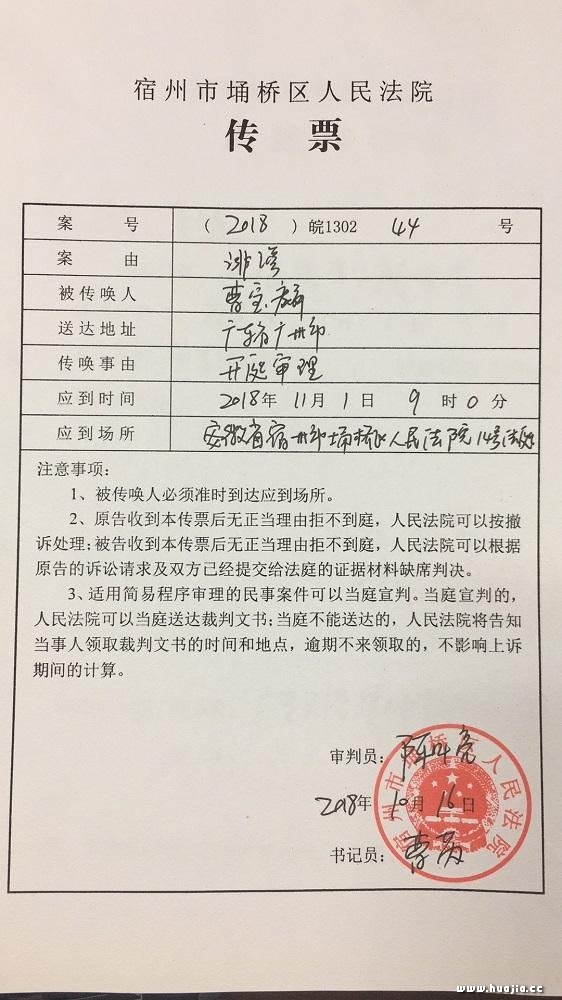 宿州市埇桥区人民法院
传 票
案 号 ( 2018 ) 皖1302 44 号
案 由 诽谤
被传唤人 曹宝麟
送达地址 广东省广州市
传唤事由 开庭审理
应到时间 2018年 11月 1日 9时0分
应到场所 安徽省宿州市埇桥区人民法院14号法庭
注意事项：
1、被传唤人必须准时到达应到场所。
2、原告收到本传票后无正当理由拒不到庭，人民法院可以按撤
诉处理；被告收到本传票后无正当理由拒不到庭，人民法院可以根据
原告的诉讼请求及双方已经提交给法庭的证据材料缺席判决。
3、适用简易程序审理的民事案件可以当庭宣判。当庭宣判的，
人民法院可以当庭送达裁判文书；当庭不能送达的，人民法院将告知
当事人领取裁判文书的时间和地点，逾期不来领取的，不影响上诉
期间的计算。
审判员：
2018年10月16日
书记员：
宿州市埇桥区人民法院
www.huajia.cc